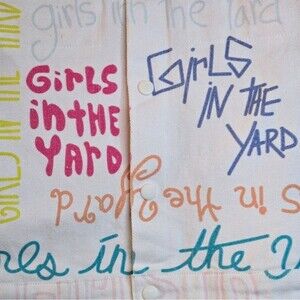 girls inn the Yard
GIRLS IN THE YARD
GiRLS
iN THE
YARD
GirLS
IN THE
YARD
s in the Yard
rls in the Y